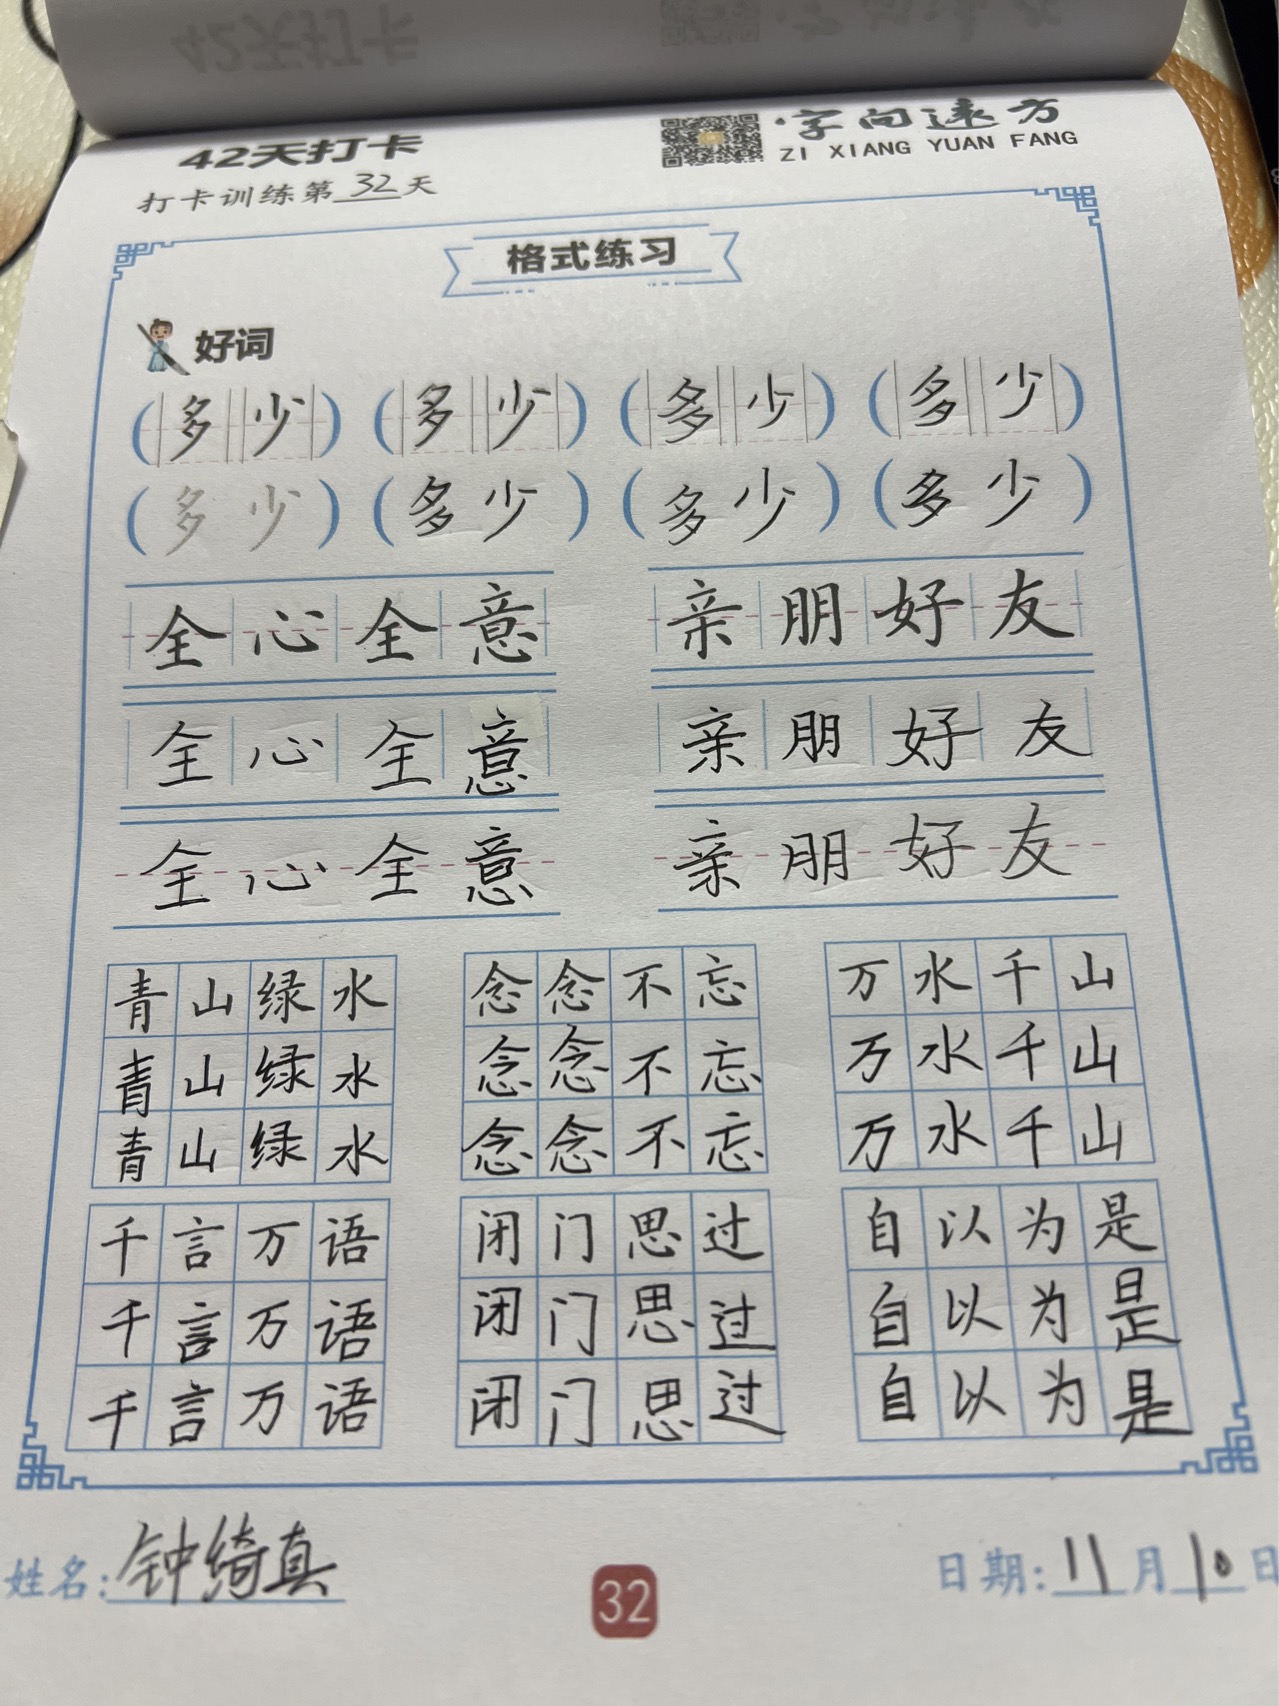 42天打卡
字向远方
ZI XIANG YUAN FANG
打卡训练第32天
格式练习
好词
(多少) (多少) (多少) (多少)
(多少) (多少) (多少) (多少)
全心全意 亲朋好友
全心全意 亲朋好友
全心全意 亲朋好友
青山绿水 念念不忘 万水千山
青山绿水 念念不忘 万水千山
青山绿水 念念不忘 万水千山
千言万语 闭门思过 自以为是
千言万语 闭门思过 自以为是
千言万语 闭门思过 自以为是
姓名:钟绮真 32 日期:11月10日